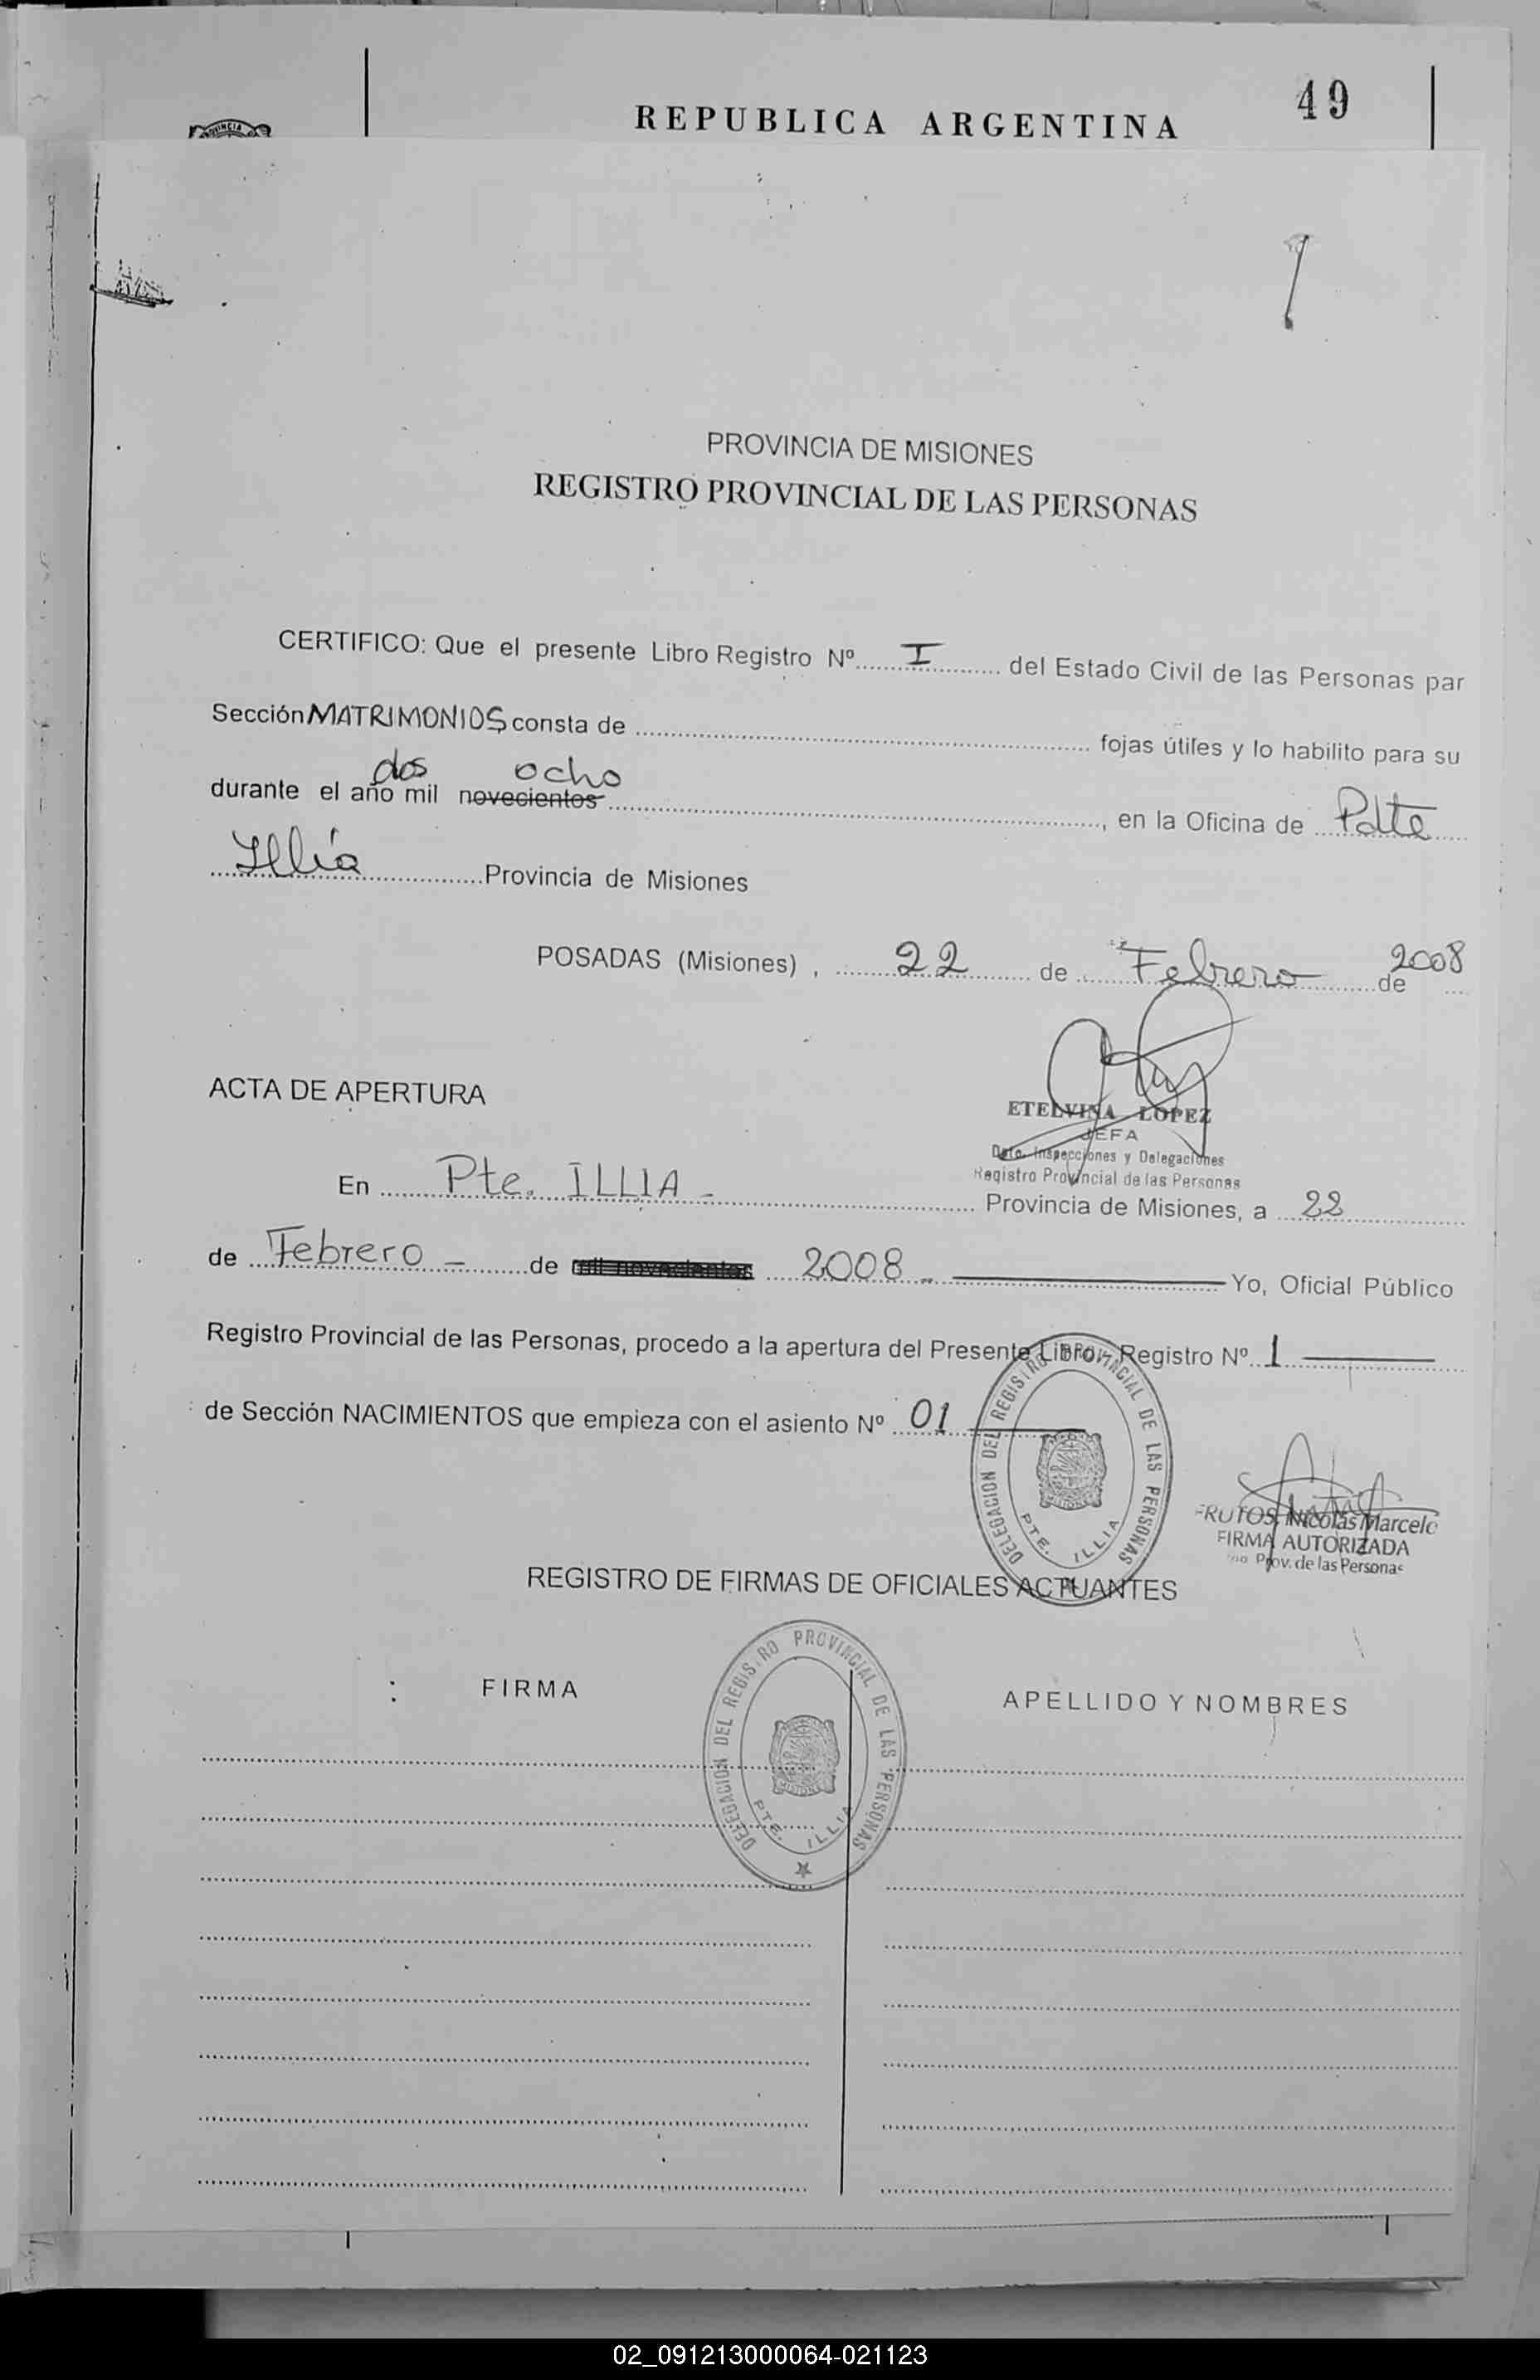 49
REPUBLICA ARGENTINA
PROVINCIA
PROVINCIA DE MISIONES
REGISTRO PROVINCIAL DE LAS PERSONAS
CERTIFICO: Que el presente Libro Registro Nº I del Estado Civil de las Personas par
Sección MATRIMONIOS consta de fojas útiles y lo habilito para su
dos ocho
durante el año mil novecientos, en la Oficina de Pdte
Illía Provincia de Misiones
POSADAS (Misiones), 22 de Febrero de 2008
ACTA DE APERTURA
ETELVINA LOPEZ
JEFA
Dpto. Inspecciones y Delegaciones
Registro Provincial de las Personas
En Pte. ILLIA - Provincia de Misiones, a 22
de Febrero - de mil novecientos 2008 - Yo, Oficial Público
Registro Provincial de las Personas, procedo a la apertura del Presente Libro Registro Nº 1
de Sección NACIMIENTOS que empieza con el asiento Nº 01
DELEGACION DEL REGISTRO PROVINCIAL DE LAS PERSONAS
PTE. ILLIA
FRUTOS, Nicolás Marcelo
FIRMA AUTORIZADA
Prov. de las Personas
REGISTRO DE FIRMAS DE OFICIALES ACTUANTES
DELEGACION DEL REGISTRO PROVINCIAL DE LAS PERSONAS
MISIONES
PTE. ILLIA
: FIRMA APELLIDO Y NOMBRES
02_091213000064-021123